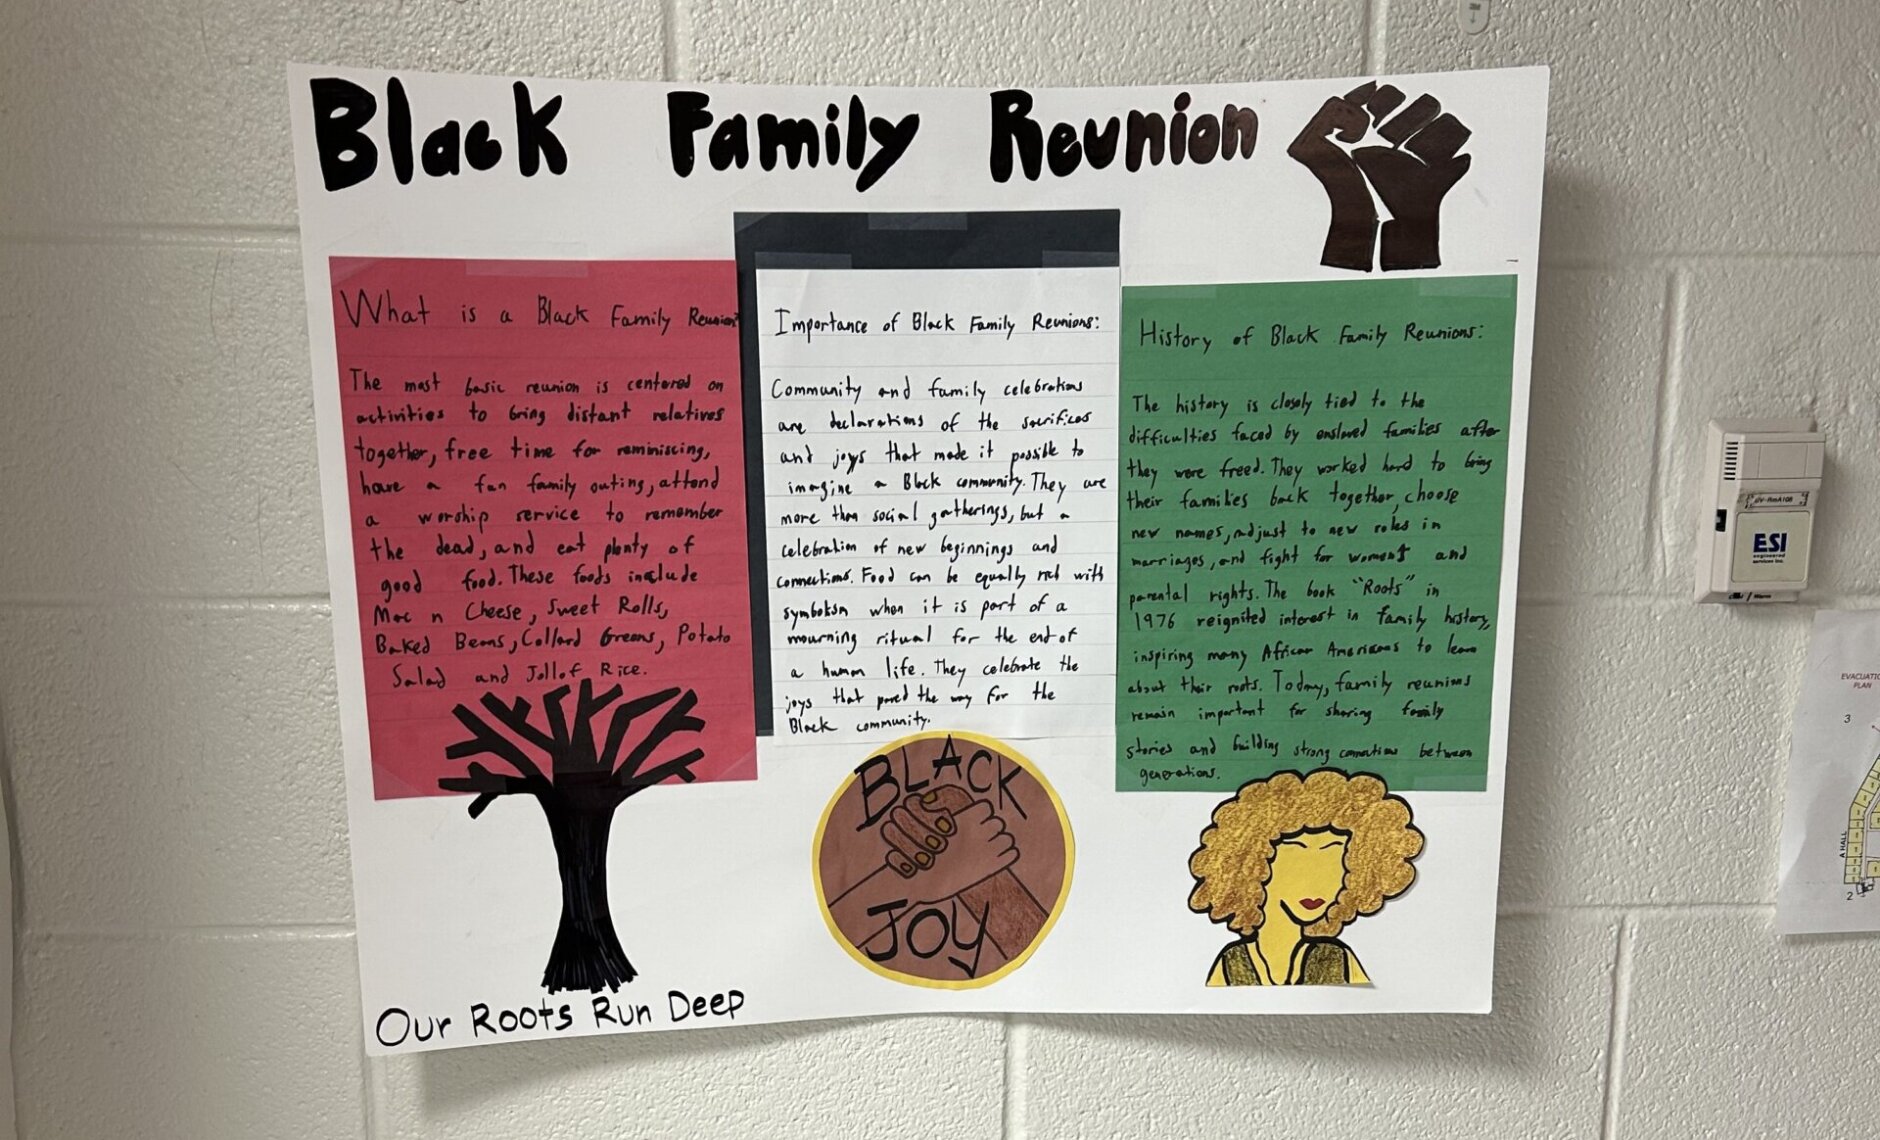 Black Family Reunion
What is a Black Family Reunion?
The most basic reunion is centered on
activities to bring distant relatives
together, free time for reminiscing,
have a fun family outing, attend
a worship service to remember
the dead, and eat plenty of
good food. These foods include
Mac n Cheese, Sweet Rolls,
Baked Beans, Collard Greens, Potato
Salad and Jollof Rice.
Importance of Black Family Reunions:
Community and family celebrations
are declarations of the sacrifices
and joys that made it possible to
imagine a Black community. They are
more than social gatherings, but a
celebration of new beginnings and
connections. Food can be equally rich with
symbolism when it is part of a
mourning ritual for the end of
a human life. They celebrate the
joys that paved the way for the
Black community.
History of Black Family Reunions:
The history is closely tied to the
difficulties faced by enslaved families after
they were freed. They worked hard to bring
their families back together, choose
new names, adjust to new roles in
marriages, and fight for women's and
parental rights. The book "Roots" in
1976 reignited interest in family history,
inspiring many African Americans to learn
about their roots. Today, family reunions
remain important for sharing family
stories and building strong connections between
generations.
BLACK
JOY
Our Roots Run Deep
ESI
engineered
services inc.
EVACUATION
PLAN
3
A HALL
2